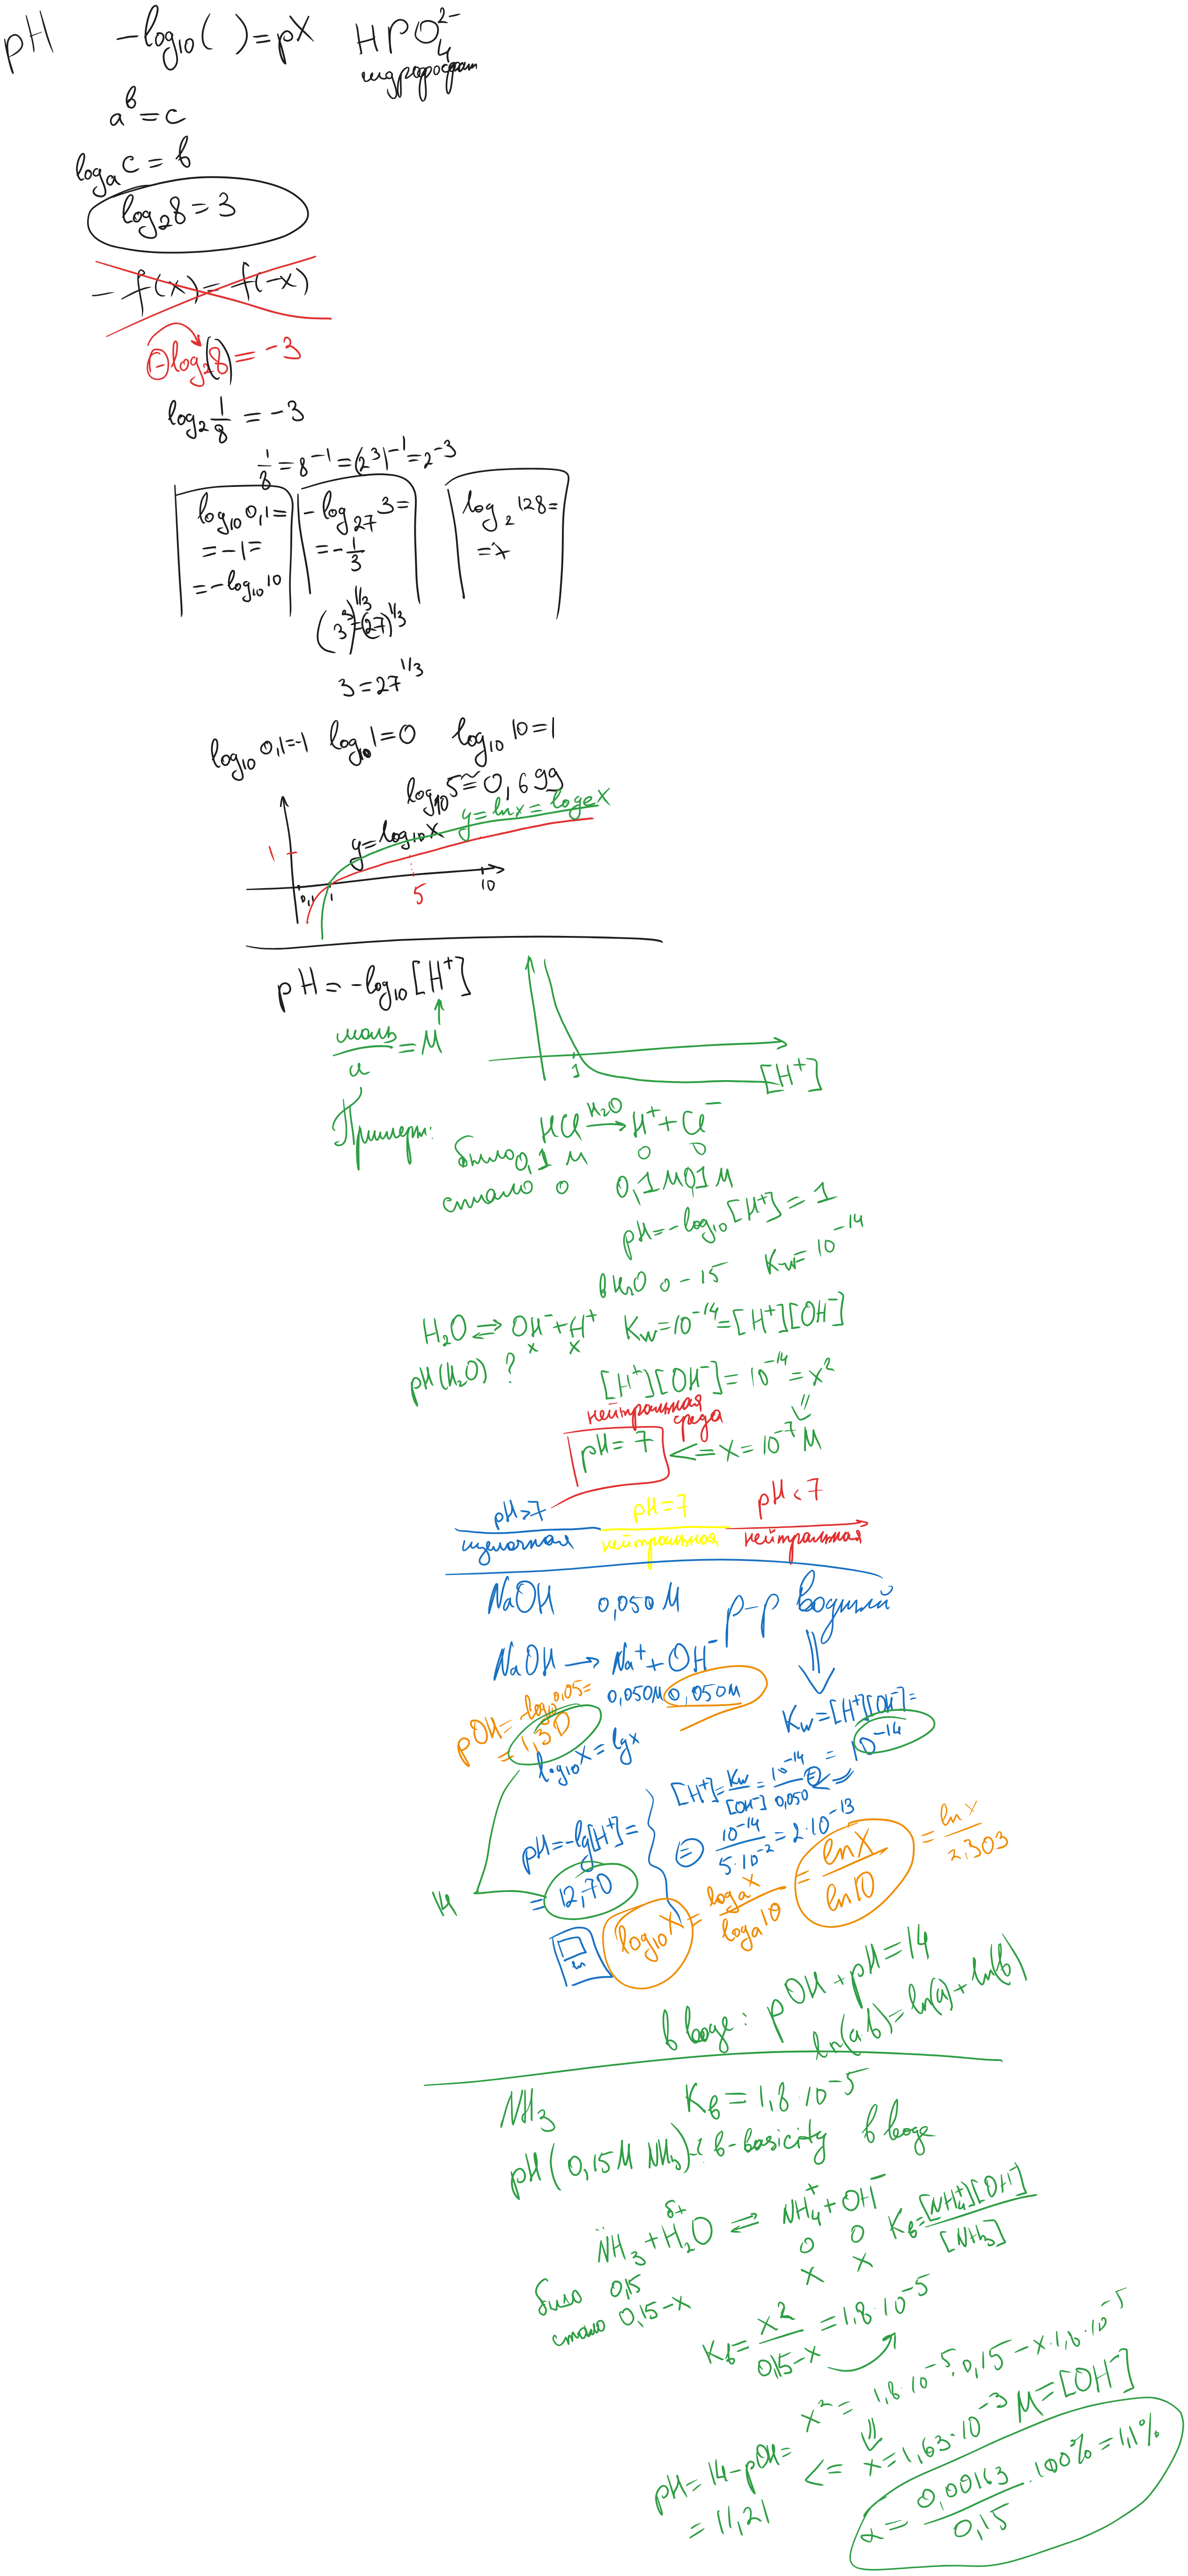 pH -log₁₀( )=pX HPO₄²⁻
гидрофосфат
aᵇ=c
logₐc=b
log₂8=3
-f(x)=f(-x)
-log₂(8)=-3
log₂ 1/8 = -3
1/8=8⁻¹=(2³)⁻¹=2⁻³
log₁₀0,1= -log₂₇3= log₂128=
=-1= =-1/3 =7
=-log₁₀10
(3³)^1/3=(27)^1/3
3=27^1/3
log₁₀0,1=-1 log₁₀1=0 log₁₀10=1
log₁₀5≈0,699
y=log₁₀x y=lnx=logₑx
1
0,1 1 5 10
pH=-log₁₀[H⁺]
моль/л=M
1 [H⁺]
Пример:
HCl H₂O→ H⁺+Cl⁻
было 0,1 M 0 0
стало 0 0,1M 0,1M
pH=-log₁₀[H⁺]=1
в H₂O 0-15 Kw=10⁻¹⁴
H₂O⇄OH⁻+H⁺ Kw=10⁻¹⁴=[H⁺][OH⁻]
x x
pH(H₂O) ? [H⁺][OH⁻]=10⁻¹⁴=x²
нейтральная среда
pH=7 <= x=10⁻⁷M
pH>7 pH=7 pH<7
щелочная нейтральная нейтральная
NaOH 0,050M р-р водный
NaOH→Na⁺+OH⁻
0,050M 0,050M
pOH=-log₁₀0,05=
=1,30
log₁₀x=lgx
Kw=[H⁺][OH⁻]=
=10⁻¹⁴
[H⁺]=Kw/[OH⁻]=10⁻¹⁴/0,050 =
= 10⁻¹⁴/5·10⁻²=2·10⁻¹³
pH=-lg[H⁺]=
=12,70
14
log₁₀x=logₐx/logₐ10=lnx/ln10=lnx/2,303
ln
в воде: pOH+pH=14
ln(a·b)=ln(a)+ln(b)
NH₃ Kb=1,8·10⁻⁵
pH(0,15M NH₃)-? b-basicity в воде
N̈H₃+H₂O⇄NH₄⁺+OH⁻ Kb=[NH₄⁺][OH⁻]/[NH₃]
δ+
было 0,15 0 0
стало 0,15-x x x
Kb=x²/0,15-x=1,8·10⁻⁵
x²=1,8·10⁻⁵·0,15-x·1,8·10⁻⁵
pH=14-pOH= <= x=1,63·10⁻³M=[OH⁻]
=11,21
α=0,00163/0,15·100%=1,1%